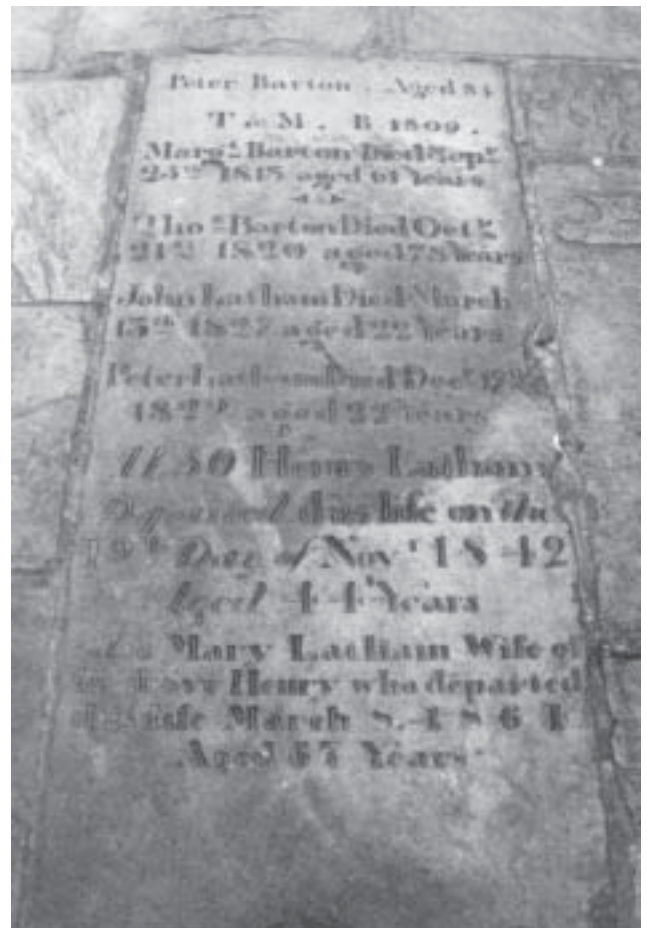 Peter Barton . Aged 84
T & M . B 1809 .
Margt. Barton Died Sept.
24th 1815 aged 61 Years
Thos. Barton Died Octr.
21st 1820 aged 78 Years
John Latham Died March
15th 1827 aged 22 Years
Peter Latham Died Decr.
aged 22 Years
ALSO Henry Latham
Departed this life on the
19th Day of Novr. 1842
Aged 44 Years
Also Mary Latham Wife of
the above Henry who departed
this life March 8. 1864
Aged Years